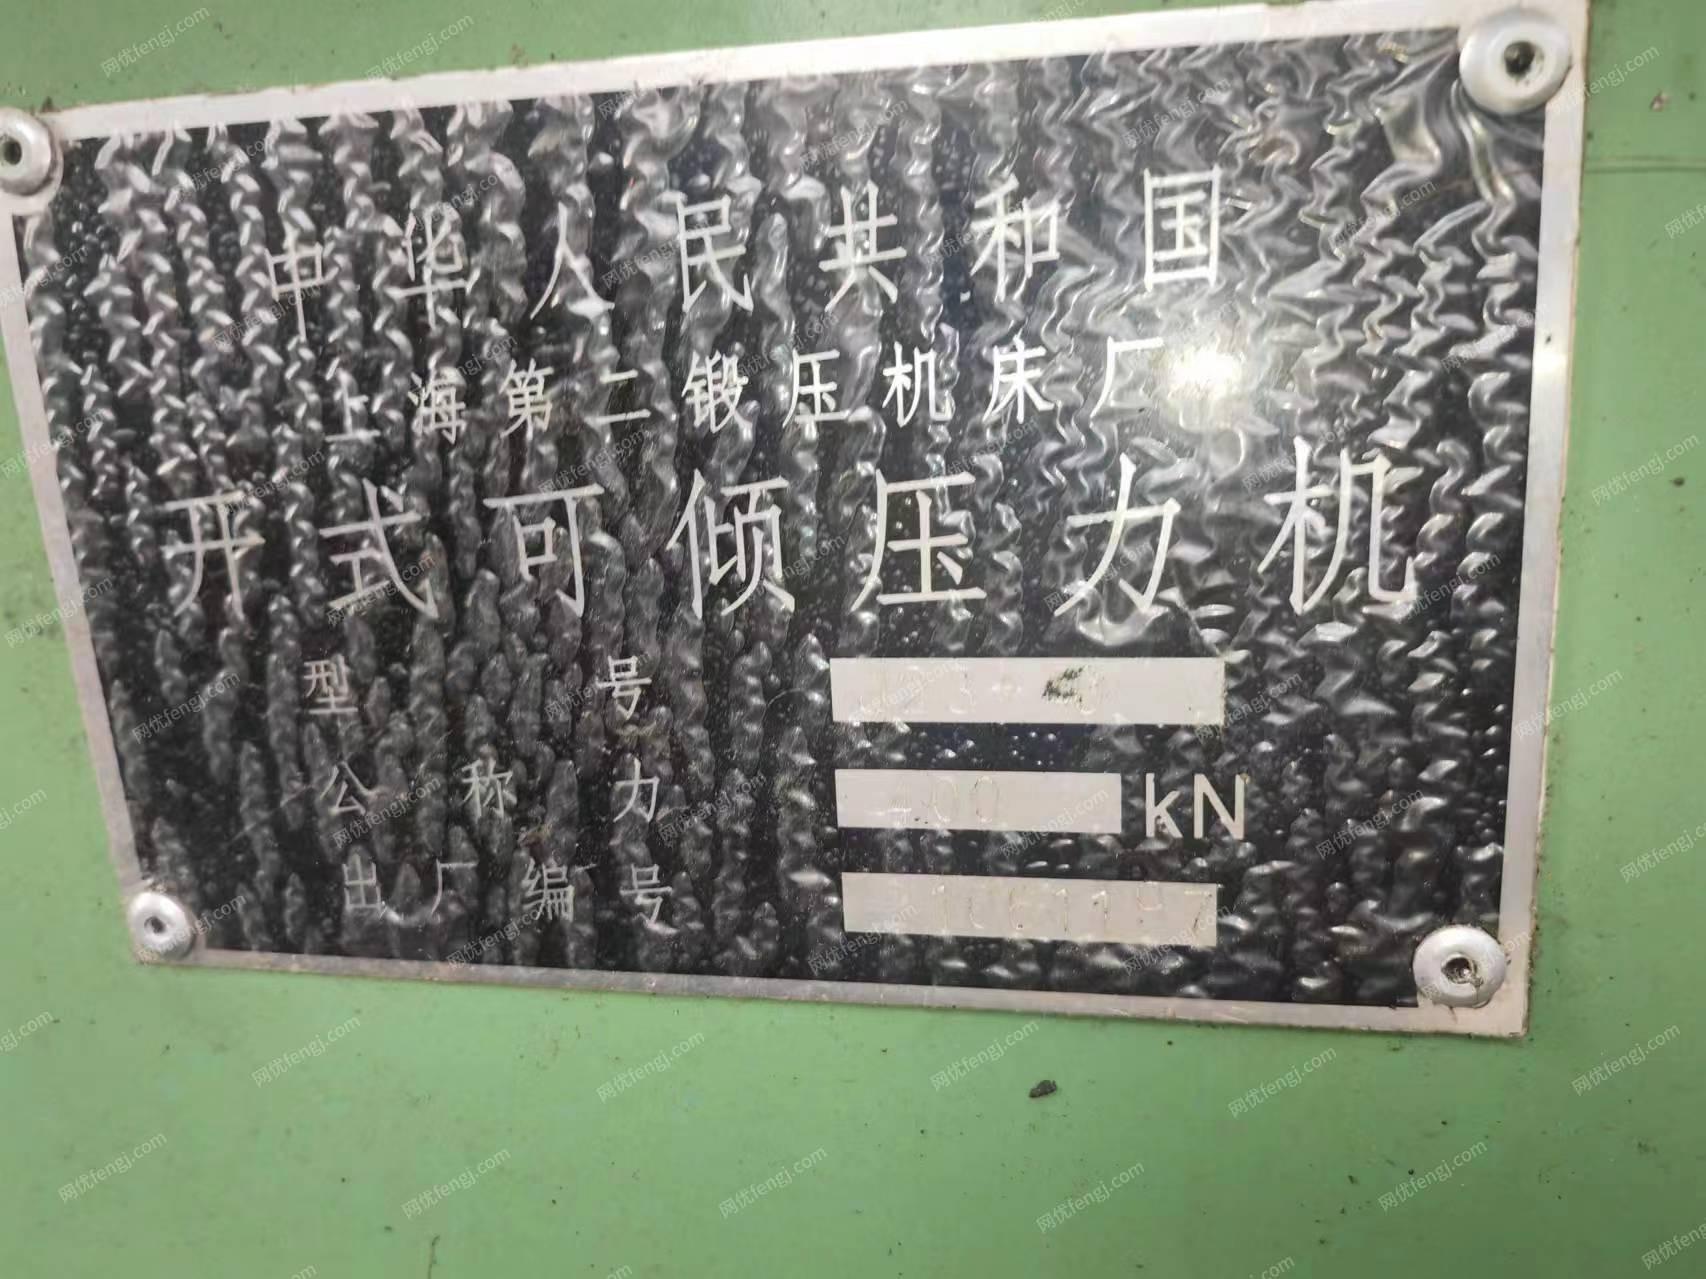 中华人民共和国
上海第二锻压机床厂
开式可倾压力机
型号
公称力 400 kN
出厂编号
网优fengj.com